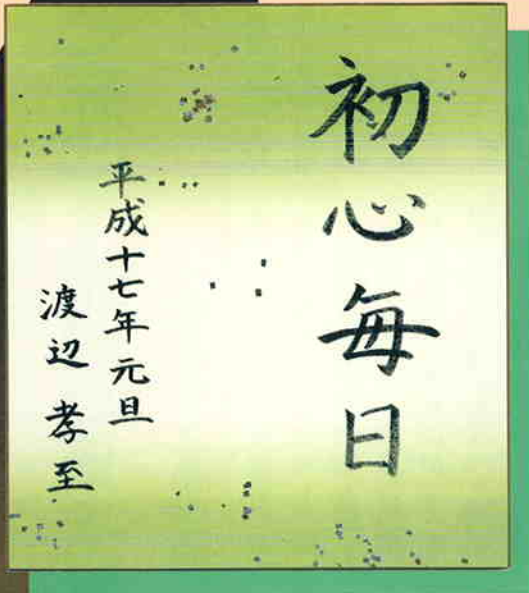 初心毎日
平成十七年元旦
渡辺孝至